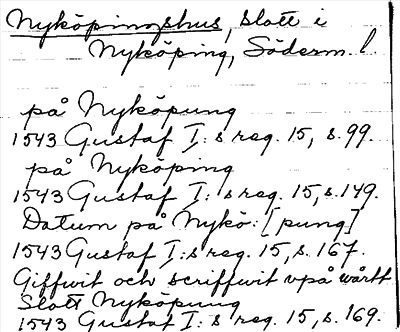 Nyköpingshus, slott i
Nyköping, Söderm. l.
på Nyköpung
1543 Gustaf I:s reg. 15, s. 99.
på Nyköping
1543 Gustaf I:s reg. 15, s. 149.
Datum på Nykö: [pung]
1543 Gustaf I:s reg. 15, s. 167.
Giffwit och scriffwit vpå wårtt
Slott Nyköpung
1543 Gustaf I:s reg. 15, s. 169.